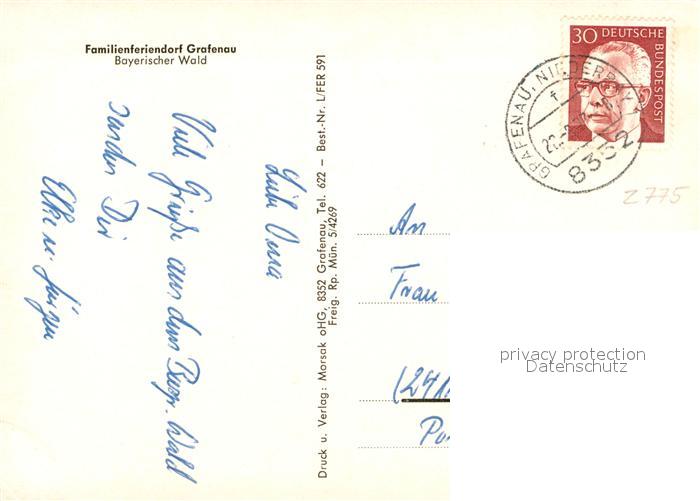 Familienferiendorf Grafenau
Bayerischer Wald
Liebe Oma
Viele Grüße aus dem Bayr. Wald
senden Dir
Elke u. Jürgen
Druck u. Verlag: Morsak oHG, 8352 Grafenau, Tel. 622 — Best.-Nr. L/FER 591
Freig. Rp. Mün. 5/4269
30 DEUTSCHE
BUNDESPOST
GRAFENAU, NIEDERB
f
8352
2775
An
Frau
privacy protection
Datenschutz